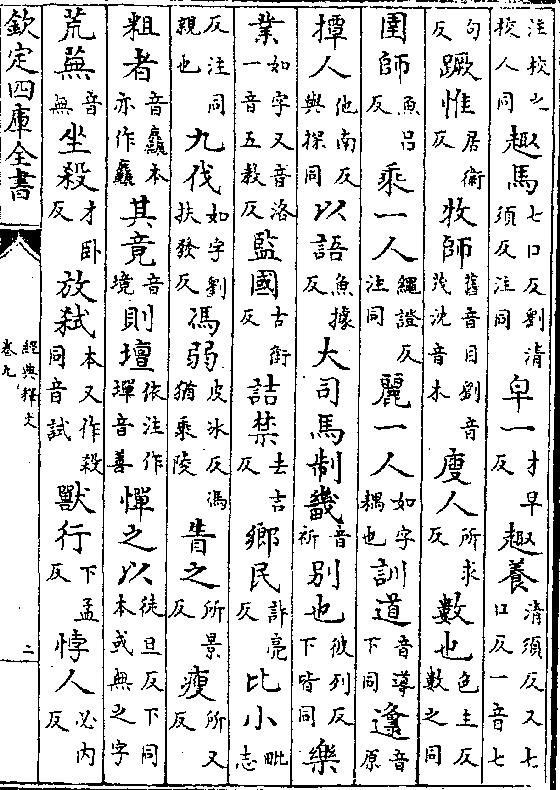 注校之校人同趣馬七口反劉清須反注同皁一才早反趣養清須反又七口反一音七
句反蹶惟居衛反牧師舊音目劉音茂沈音木廋人所求反數也色主反數之同
圉師魚呂反乘一人繩證反注同麗一人如字耦也訓道音導下同邍音原
撢人他南反與探同以語魚據反大司馬制畿音祈别也彼列反下皆同樂
業如字又音洛一音五敎反監國古銜反詰禁去吉反鄉民許亮反比小毗志
反注同親也九伐如字劉扶發反馮弱皮冰反馮猶乘陵眚之所景反瘦所又反
粗者音麤本亦作麤其竟音境則壇依注作墠音善憚之以徒旦反下同本或無之字
荒蕪音無坐殺才卧反放弑本又作殺同音試獸行下孟反悖人必内反
欽定四庫全書
經典釋文
卷九
二